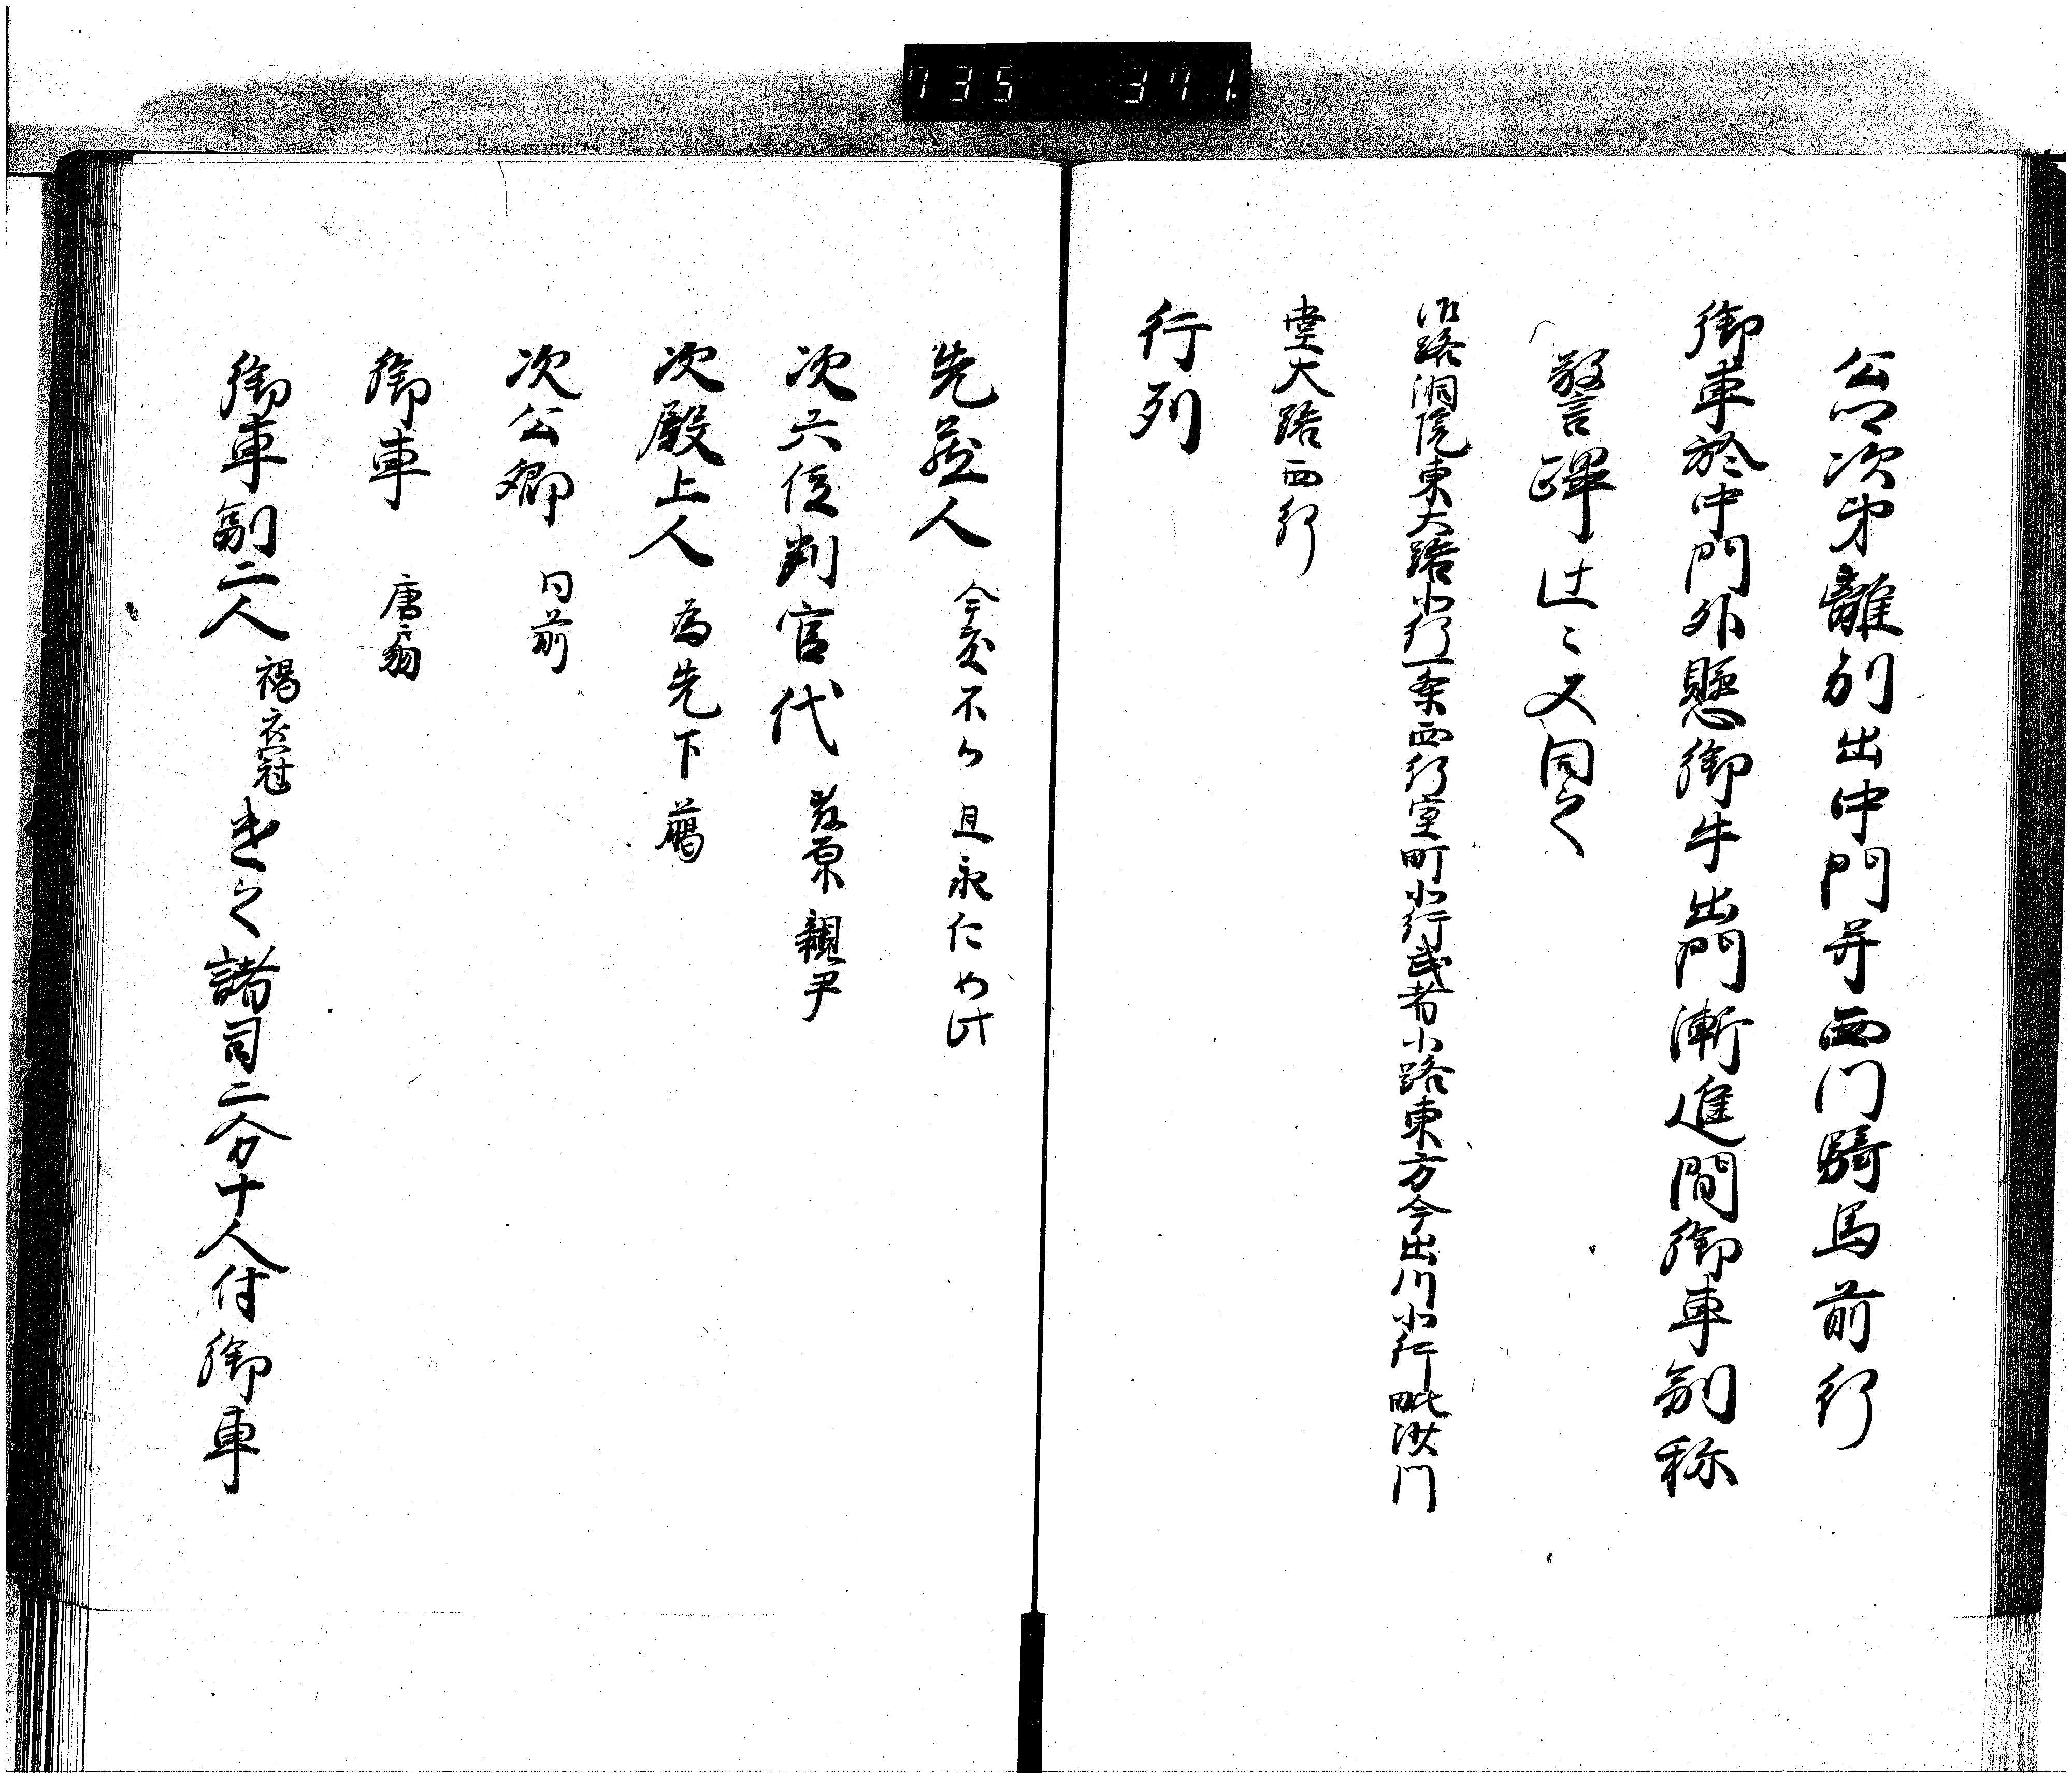 735 371
公卿次第離列出中門并西門騎馬前行
御車於中門外懸御牛出門漸進間御車副称
警蹕辻々又同之
御路洞院東大路北行一条西行室町北行武者小路東方今出川北行毗沙門
堂大路西行
行列
先蔵人 今度不 且永仁如此
次六位判官代 藤原親尹
次殿上人 為先下臈
次公卿 同前
御車 唐庇
御車副二人 褐衣冠 諸司二分十人付御車